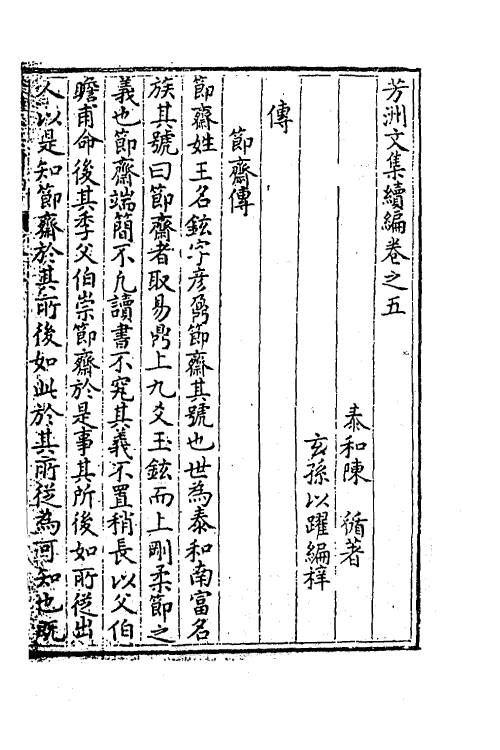 芳洲文集續編卷之五
泰和陳　循著
玄孫以躍編梓
傳
節齋傳
節齋姓王名鉉字彦鼎節齋其號也世為泰和南富名
族其號曰節齋者取易鼎上九爻玉鉉而上剛柔節之
義也節齋端簡不凡讀書不究其義不置稍長以父伯
瞻甫命後其季父伯崇節齋於是事其所後如所從出
人以是知節齋於其所後如此於其所從為可知也既